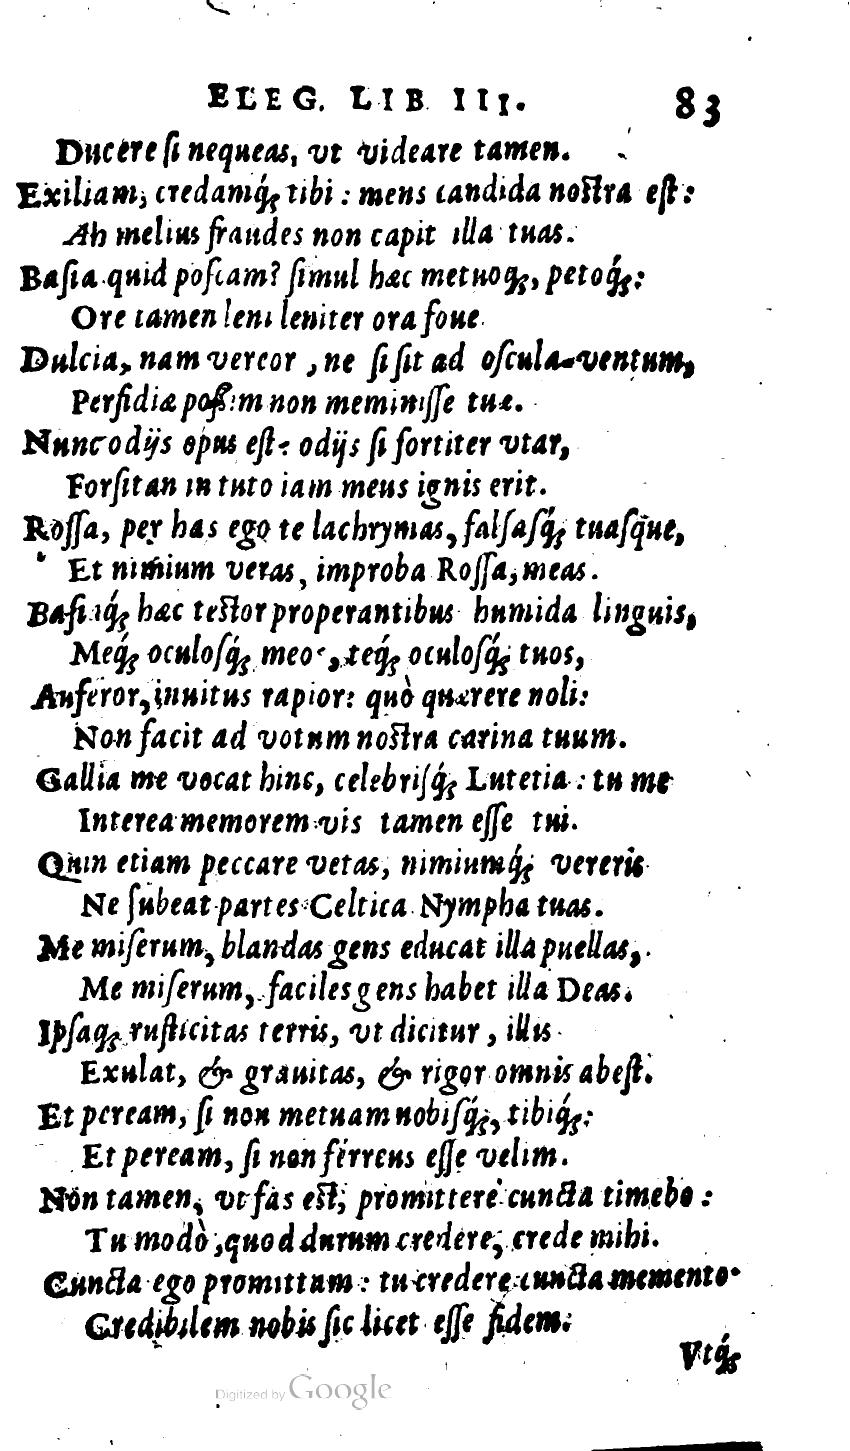 ELEG. LIB III. 83
Ducere ſi nequeas, vt videare tamen.
Exiliam, credamq́; tibi : mens candida noſtra eſt:
Ah melius fraudes non capit illa tuas.
Baſia quid poſcam? ſimul hæc metuoq;, petoq́;:
Ore tamen leni leniter ora foue.
Dulcia, nam vereor, ne ſi ſit ad oſcula ventum,
Perfidiæ poſſim non meminiſſe tuæ.
Nunc odijs opus eſt: odijs ſi fortiter vtar,
Forſitan in tuto iam meus ignis erit.
Roſſa, per has ego te lachrymas, falſaſq́; tuaſq̃ue,
Et nimium veras, improba Roſſa, meas.
Baſiaq́; hæc teſtor properantibus humida linguis,
Meq́; oculoſq́; meos, teq́; oculoſq́; tuos,
Auferor, inuitus rapior: quò quærere noli:
Non facit ad votum noſtra carina tuum.
Gallia me vocat hinc, celebriſq́; Lutetia : tu me
Interea memorem vis tamen eſſe tui.
Quin etiam peccare vetas, nimiumq́; vereris
Ne ſubeat partes Celtica Nympha tuas.
Me miſerum, blandas gens educat illa puellas,
Me miſerum, faciles gens habet illa Deas.
Ipſaq; ruſticitas terris, vt dicitur, illis
Exulat, & grauitas, & rigor omnis abeſt.
Et peream, ſi non metuam nobiſq́;, tibiq́;:
Et peream, ſi non ferreus eſſe velim.
Non tamen, vt fas eſt, promittere cuncta timebo :
Tu modò, quod durum credere, crede mihi.
Cuncta ego promittam : tu credere cuncta memento
Credibilem nobis ſic licet eſſe fidem.
Vtq́;
Digitized by Google